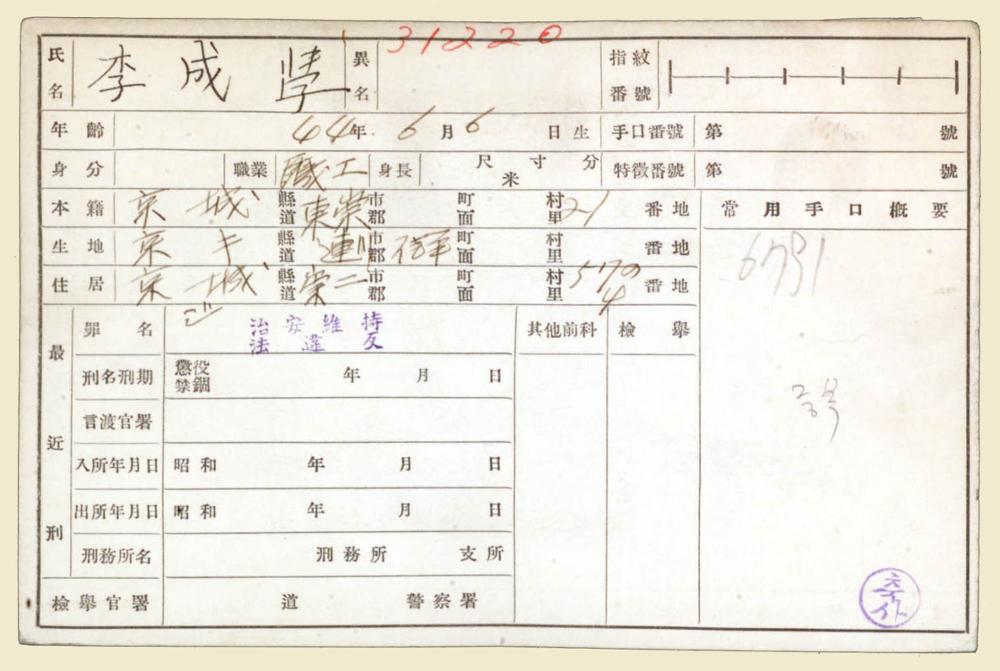 31220
氏名 李成學 異名 指紋番號
年齡 44年 6月6日生 手口番號 第 號
身分 職業 職工 身長 尺寸分 米 特徵番號 第 號
本籍 京城 縣道 東崇 市郡 町面 村里 21 番地 常用手口槪要
生地 京キ 縣道 市郡 町面 村里 番地
住居 京城 縣道 崇二 市郡 町面 村里 番地
6791
最近刑 罪名 治安維持法違反 其他前科 檢擧
刑名刑期 懲役 禁錮 年 月 日
言渡官署
入所年月日 昭和 年 月 日
出所年月日 昭和 年 月 日
刑務所名 刑務所 支所
檢擧官署 道 警察署